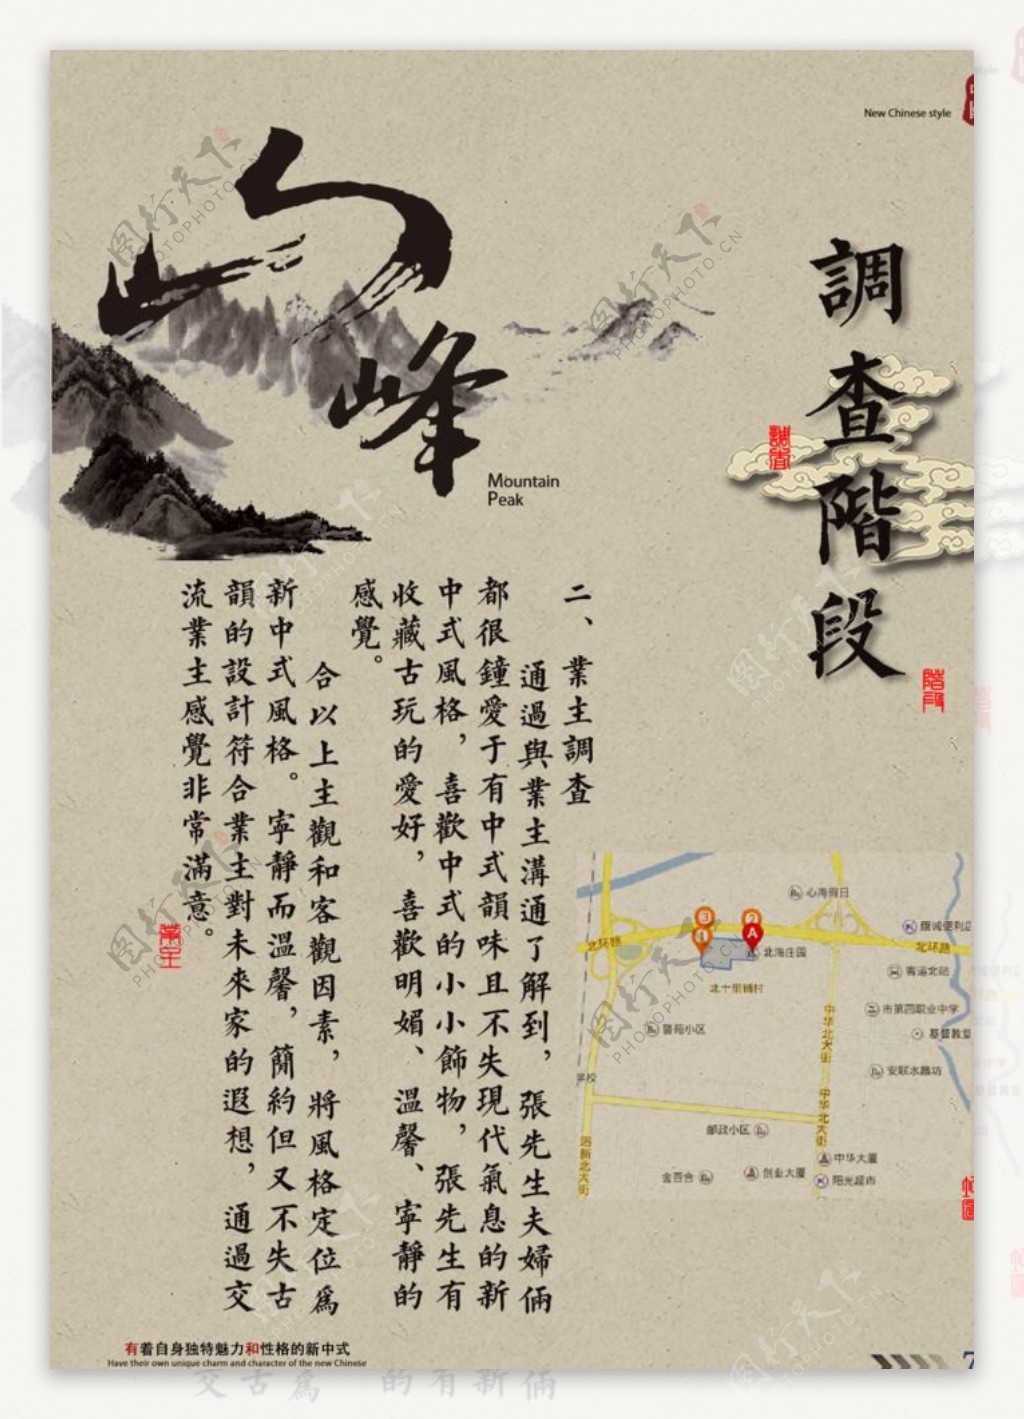 New Chinese style
調查階段
調查
階段
山峰
Mountain
Peak
二、業主調查
通過與業主溝通了解到，張先生夫婦倆
都很鐘愛于有中式韻味且不失現代氣息的新
中式風格，喜歡中式的小小飾物，張先生有
收藏古玩的愛好，喜歡明媚、溫馨、寧靜的
感覺。
合以上主觀和客觀因素，將風格定位爲
新中式風格。寧靜而溫馨，簡約但又不失古
韻的設計符合業主對未來家的遐想，通過交
流業主感覺非常滿意。
業主
心海假日
康诚便利店
北环路
北环路
北海庄园
客运北站
北十里铺村
市第四职业中学
中华北大街
基督教堂
警苑小区
安联水晶坊
学校
中华北大街
邮政小区
中华大厦
金百合
创业大厦
阳光超市
3
2
1
A
有着自身独特魅力和性格的新中式
Have their own unique charm and character of the new Chinese
7
图行天下
PHOTOPHOTO.CN